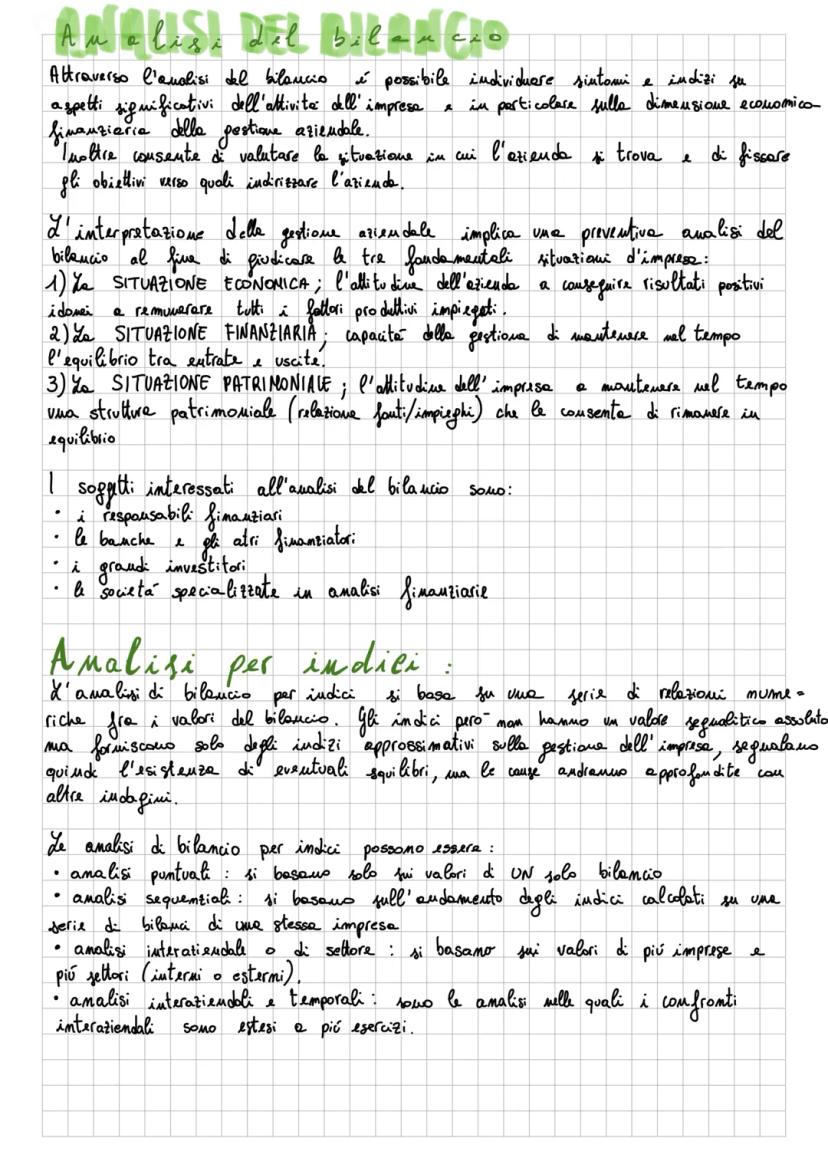 ANALISI DEL BILANCIO
Analisi del bilancio
Attraverso l'analisi del bilancio é possibile individuare sintomi e indizi su
aspetti significativi dell'attivitá dell'impresa e in particolare sulla dimensione economico
finanziaria della gestione aziendale.
Inoltre consente di valutare la situazione in cui l'azienda si trova e di fissare
gli obiettivi verso quali indirizzare l'azienda.
L'interpretazione della gestione aziendale implica una preventiva analisi del
bilancio al fine di giudicare le tre fondamentali situazioni d'impresa:
1) La SITUAZIONE ECONONICA; l'attitudine dell'azienda a conseguire risultati positivi
idonei a remunerare tutti i fattori produttivi impiegati.
2) La SITUAZIONE FINANZIARIA; capacitá della gestione di mantenere nel tempo
l'equilibrio tra entrate e uscite.
3) La SITUAZIONE PATRIMONIALE; l'attitudine dell'impresa a mantenere nel tempo
una struttura patrimoniale (relazione fonti/impieghi) che le consenta di rimanere in
equilibrio
I soggetti interessati all'analisi del bilancio sono:
• i responsabili finanziari
• le banche e gli atri finanziatori
• i grandi investitori
• le societá specializzate in analisi finanziarie
Analisi per indici:
L'analisi di bilancio per indici si basa su una serie di relazioni nume-
riche fra i valori del bilancio. Gli indici peró non hanno un valore segnalitico assoluto
ma forniscono solo degli indizi approssimativi sulla gestione dell'impresa, segnalano
quindi l'esistenza di eventuali squilibri, ma le cause andranno approfondite con
altre indagini.
Le analisi di bilancio per indici possono essere:
• analisi puntuali: si basano solo sui valori di UN solo bilancio
• analisi sequenziali: si basano sull'andamento degli indici calcolati su una
serie di bilanci di una stessa impresa
• analisi interaziendale o di settore: si basano sui valori di piú imprese e
piú settori (interni o esterni).
• analisi interaziendali e temporali: sono le analisi nelle quali i confronti
interaziendali sono estesi a piú esercizi.